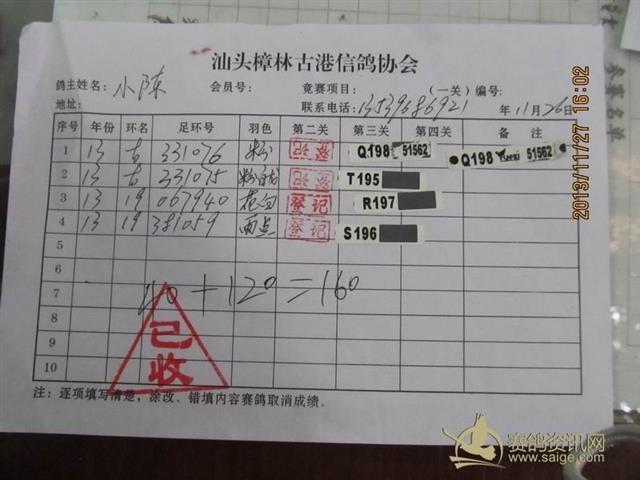 汕头樟林古港信鸽协会
鸽主姓名：小陈 会员号： 竞赛项目： （一关）编号：
地址： 联系电话：13539686921 年11月26日
序号 年份 环名 足环号 羽色 第二关 第三关 第四关 备 注
1 13 古 331076 粉 Q198 51562 Q198 51562
2 13 古 331075 T195
3 13 19 067940 花 登记 R197
4 13 19 381059 雨点 登记 S196
5
6
7 40+120=160
8
9
10
已收
注：逐项填写清楚，涂改、错填内容赛鸽取消成绩。
2013/11/27 16:02
赛鸽资讯网
www.saige.com